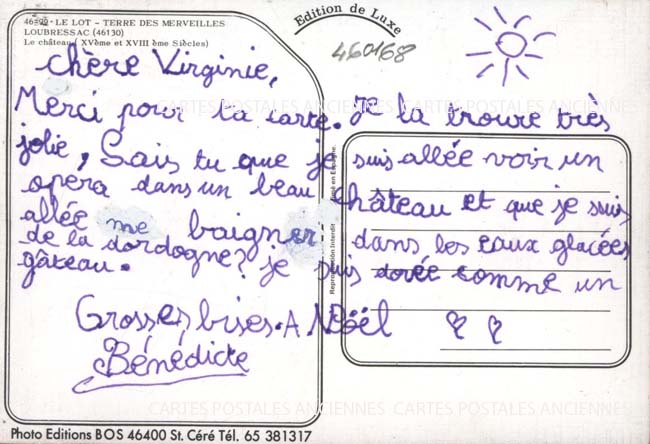 46302 - LE LOT - TERRE DES MERVEILLES
LOUBRESSAC (46130)
Le château ( XVème et XVIII ème Siècles)
Edition de Luxe
460168
chère Virginie,
Merci pour ta carte. je la trouve très
jolie, Sais tu que je suis allée voir un
opéra dans un beau château et que je suis
allée me baigner dans les eaux glacées
de la dordogne? je suis dorée comme un
gâteau.
Grosses bises. A Nöël
Bénédicte
Reproduction Interdit
en Espagne
CARTES POSTALES ANCIENNES CARTES POSTALES ANCIENNES
CARTES POSTALES ANCIENNES CARTES POSTALES ANCIENNES
Photo Editions BOS 46400 St. Céré Tél. 65 381317